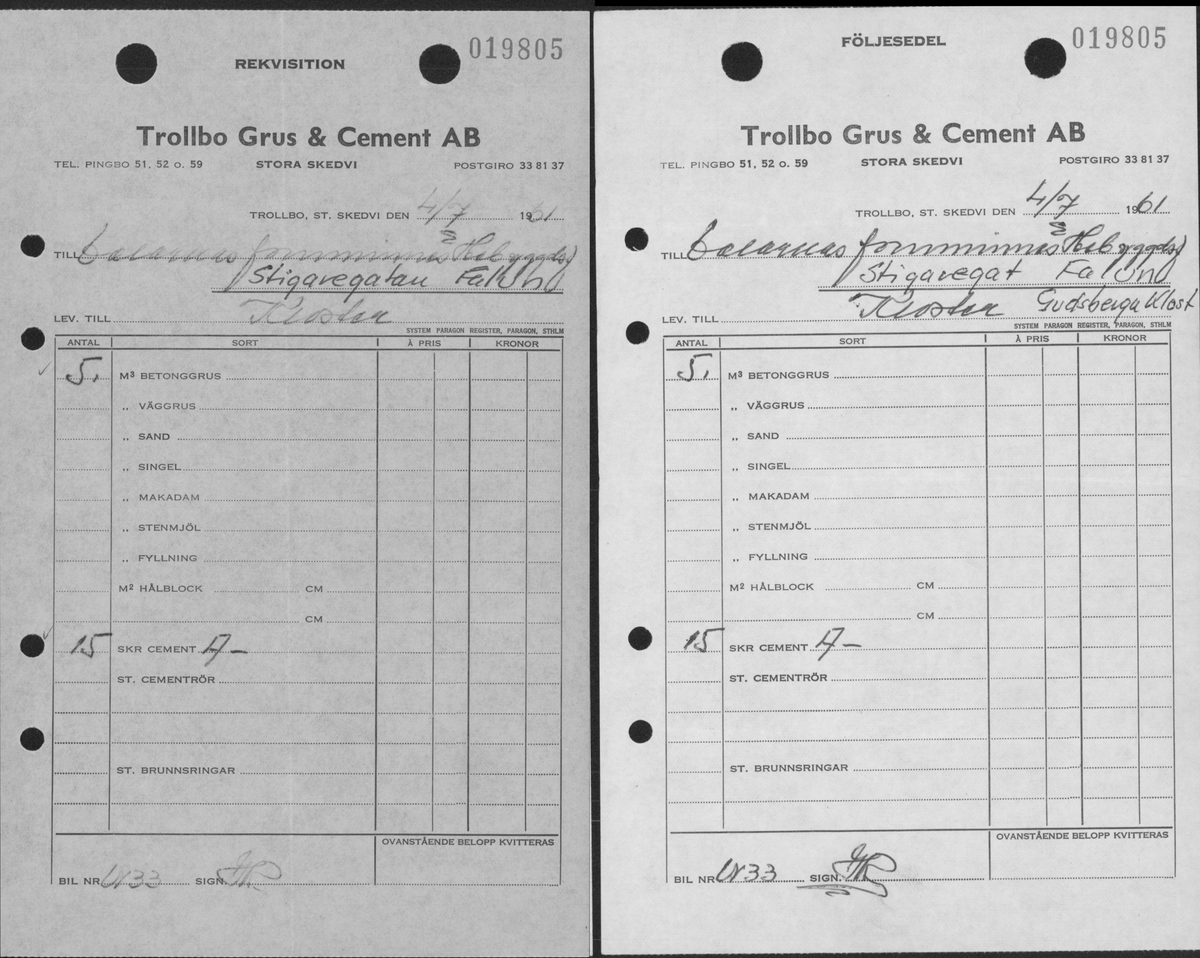 REKVISITION
019805
Trollbo Grus & Cement AB
TEL. PINGBO 51, 52 o. 59 STORA SKEDVI POSTGIRO 33 81 37
TROLLBO, ST. SKEDVI DEN 4/7 1961
TILL Dalarnas fornminnes
Stigaregatan Falun
LEV. TILL Kloster
SYSTEM PARAGON REGISTER, PARAGON, STHLM
ANTAL SORT À PRIS KRONOR
5, M³ BETONGGRUS
„ VÄGGRUS
„ SAND
„ SINGEL
„ MAKADAM
„ STENMJÖL
„ FYLLNING
M² HÅLBLOCK CM
CM
15 SKR CEMENT A-
ST. CEMENTRÖR
ST. BRUNNSRINGAR
OVANSTÅENDE BELOPP KVITTERAS
BIL NR W33 SIGN.
FÖLJESEDEL
019805
Trollbo Grus & Cement AB
TEL. PINGBO 51, 52 o. 59 STORA SKEDVI POSTGIRO 33 81 37
TROLLBO, ST. SKEDVI DEN 4/7 1961
TILL Dalarnas fornminnes
Stigaregat Falun
LEV. TILL Kloster Gudsberga Klost
SYSTEM PARAGON REGISTER, PARAGON, STHLM
ANTAL SORT À PRIS KRONOR
5, M³ BETONGGRUS
„ VÄGGRUS
„ SAND
„ SINGEL
„ MAKADAM
„ STENMJÖL
„ FYLLNING
M² HÅLBLOCK CM
CM
15 SKR CEMENT A-
ST. CEMENTRÖR
ST. BRUNNSRINGAR
OVANSTÅENDE BELOPP KVITTERAS
BIL NR W33 SIGN.